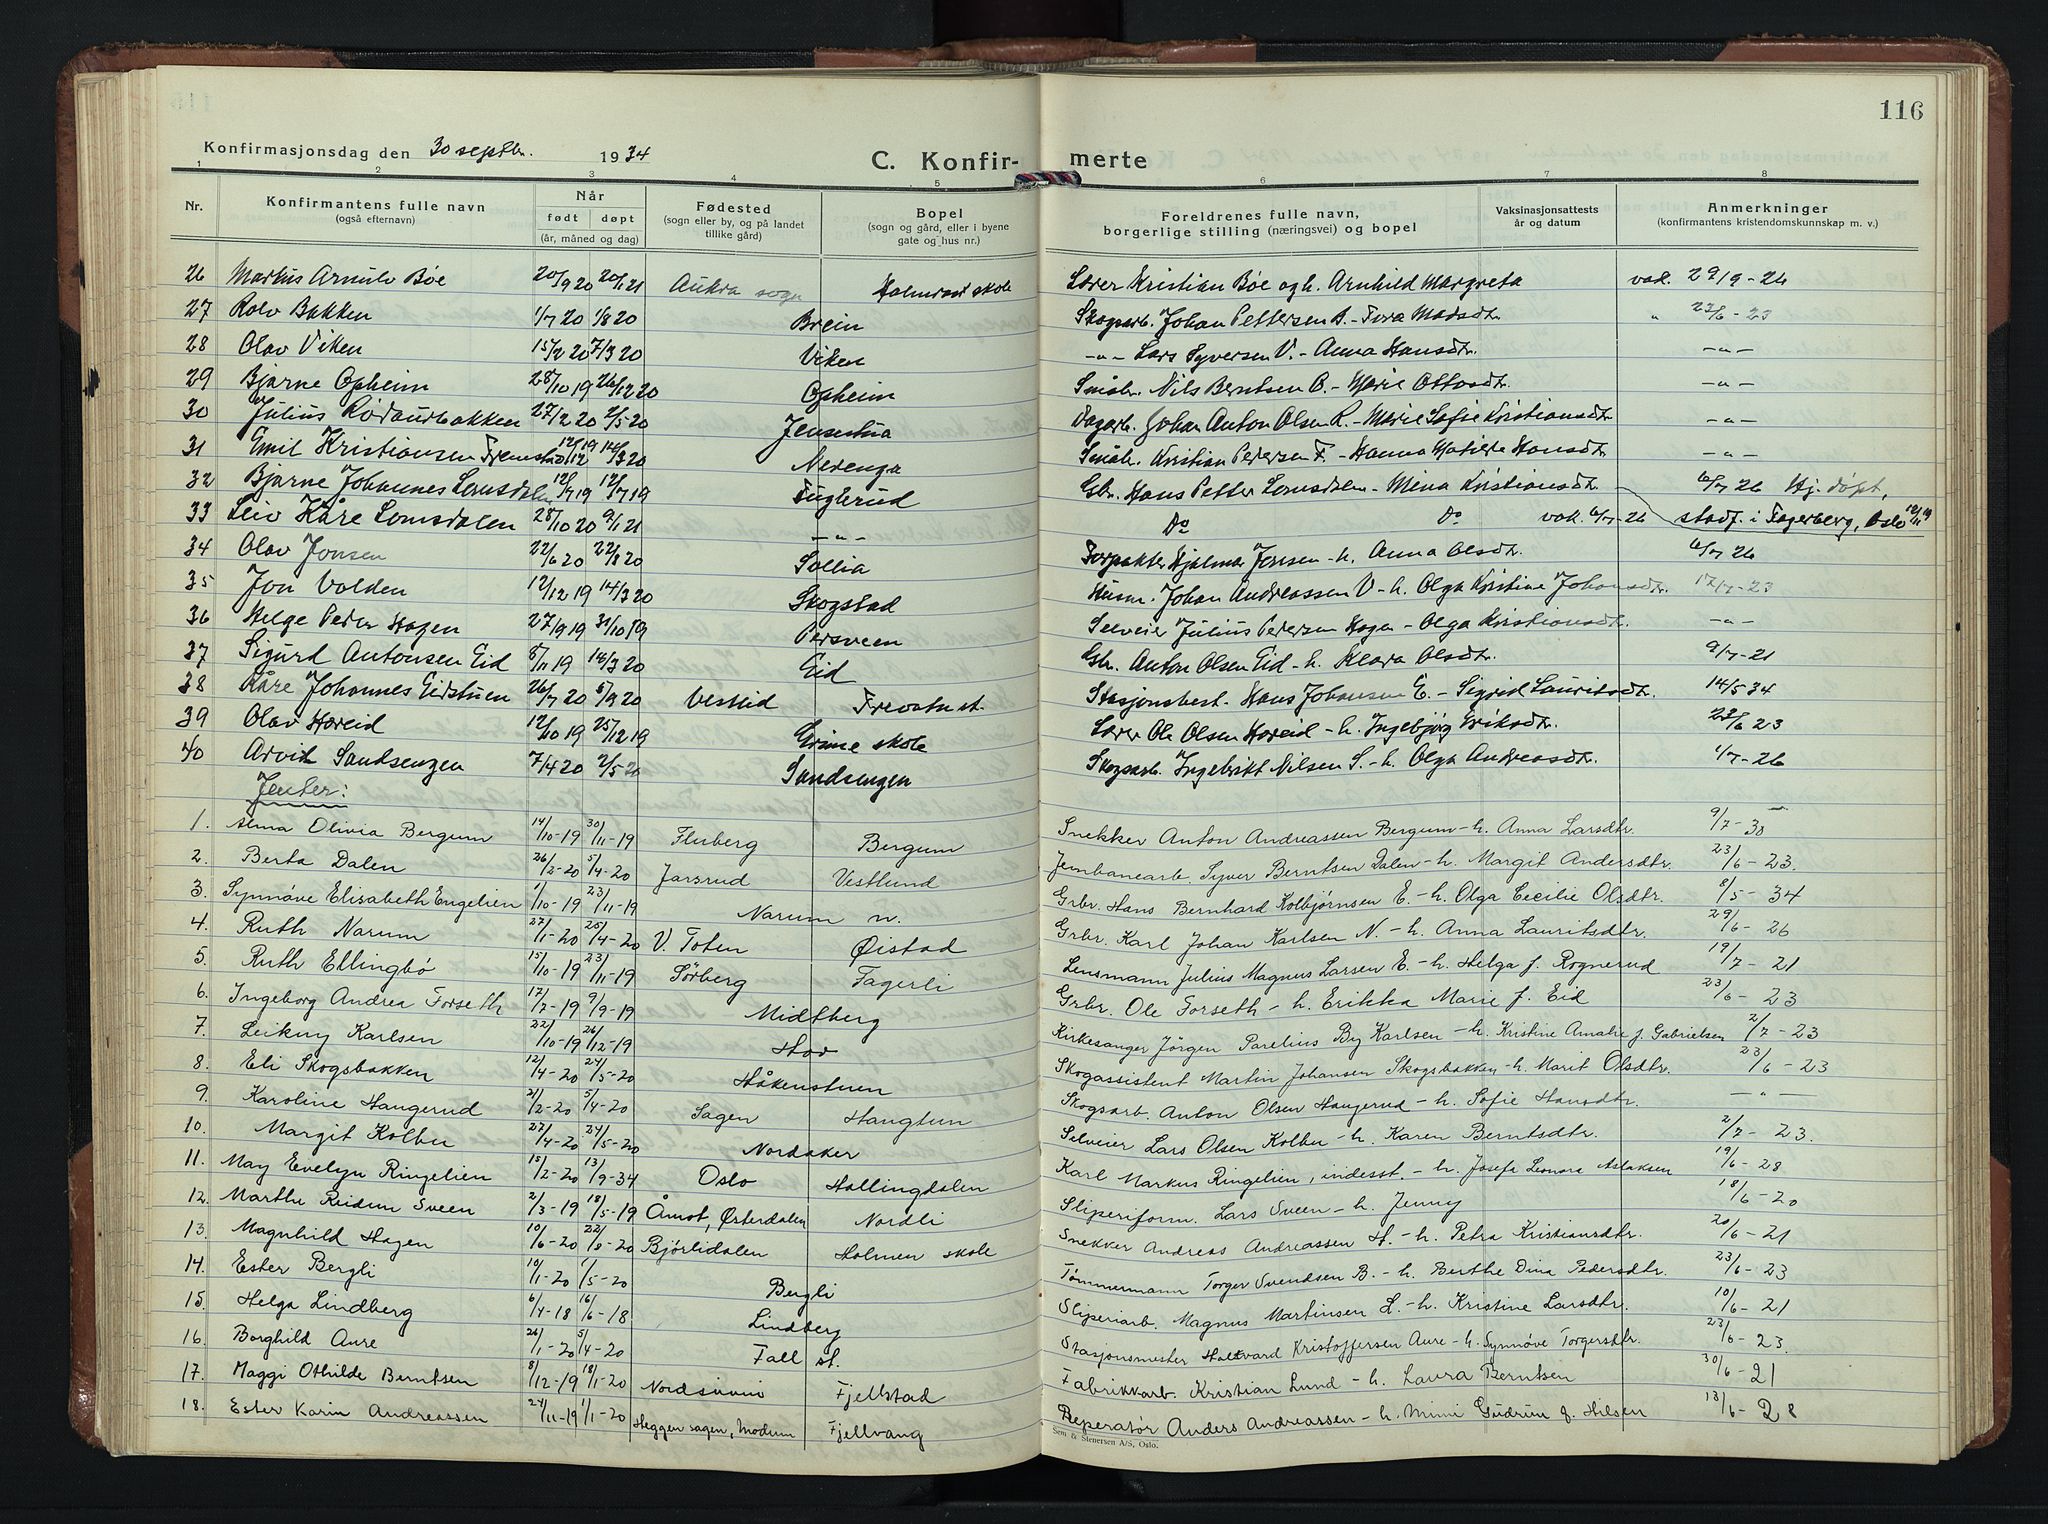 116
Konfirmasjonsdag den 30 septbr. 1934
C. Konfir- merte
1 2 3 4 5 6 7 8
Nr. Konfirmantens fulle navn (også efternavn) Når født døpt (år, måned og dag) Fødested (sogn eller by, og på landet tillike gård) Bopel (sogn og gård, eller i byene gate og hus nr.) Foreldrenes fulle navn, borgerlige stilling (næringsvei) og bopel Vaksinasjonsattests år og datum Anmerkninger (konfirmantens kristendomskunnskap m. v.)
26 Markus Arnulv Bøe 20/9 20 20/1 21 Aukra sogn skole Lærer Kristian Bøe og h. Arnhild Margreta vad. 29/9-26
27 Rolv Bakken 1/7 20 1/8 20 Brein Skogsarb. Johan Pettersen B. - Tora Madsdtr. " 23/6-23
28 Olav Viken 15/2 20 7/3 20 Viken -"- Lars Syversen V. - Anna Hansdtr. -"-
29 Bjarne Opheim 28/10 19 26/12 20 Opheim Småbr. Nils Berntsen O. - Marie Ottosdtr. -"-
30 Julius Rødaurbakken 27/2 20 2/5 20 Jensestua Dagarb. Johan Anton Olsen R. - Marie Sofie Kristiansdtr. -"-
31 Emil Kristiansen Fremstad 12/12 19 14/3 20 Nerenga Småbr. Kristian Pedersen F. - Hanna Matilde Hansdtr. -"-
32 Bjarne Johannes Lomsdalen 12/7 19 12/7 19 Fuglerud Gbr. Hans Petter Lomsdalen - Mina Kristiansdtr. 6/7 26 Hj. døpt,
33 Leiv Kåre Lomsdalen 28/10 20 9/1 21 -"- Do Do vak. 6/7-26 stadf. i Fagerberg, Oslo 12/11 19
34 Olav Jonsen 22/6 20 22/8 20 Sollia Forpakter Hjalmar Jonsen - h. Anna Olsdtr. 6/7 26
35 Jon Volden 12/12 19 14/3 20 Skogstad Husm. Johan Andreassen V - h. Olga Kristine Johansdtr. 17/7-23
36 Helge Peder Hagen 27/9 19 31/10 19 Persveen Selveier Julius Pedersen Hagen - Olga Kristiansdtr. -"-
37 Sigurd Antonsen Eid 8/11 19 14/3 20 Eid Gbr. Anton Olsen Eid - h. Klara Olsdtr. 9/7-21
38 Kåre Johannes Eidstuen 26/7 20 5/9 20 Vestlid Frevatn st. Stasjonsbest. Hans Johansen E. - Sigrid Lauritsdtr. 14/5 34
39 Olav Hareid 12/10 19 25/12 19 Grime skole Lærer Ole Olsen Hareid - h. Ingebjørg Eriksdtr. 23/6 23
40 Arvid Sandsengen 7/4 20 2/5 20 Sandsengen Skogsarb. Ingebrikt Nilsen S. - h. Olga Andreasdtr. 6/7-26
Jenter:
1. Alma Olivia Bergum 14/10-19 30/11-19 Fluberg Bergum Snekker Anton Andreassen Bergum - h. Anna Larsdtr. 9/7-30
2. Berta Dalen 26/2-20 5/4-20 Jarsrud Vestlund Jernbanearb. Syver Berntsen Dalen - h. Margit Andersdtr. 23/6-23.
3. Synnøve Elisabeth Engelien 1/10-19 23/11-19 Narum n. Grbr. Hans Bernhard Kolbjørnsen E. - h. Olga Cecilie Olsdtr. 8/5-34
4. Ruth Narum 27/1-20 25/4-20 V. Toten Øistad Grbr. Karl Johan Karlsen N. - h. Anna Lauritsdtr. 29/6-26
5. Ruth Ellingbö 15/10-19 23/11-19 Sörberg Fagerli Lensmann Julius Magnus Larsen E. - h. Helga f. Rognerud 19/7-21
6. Ingeborg Andrea Forseth 17/7-19 9/9-19 Midtberg Grbr. Ole Forseth - h. Erikka Marie f. Eid 23/6-23
7. Leikny Karlsen 22/10-19 26/12-19 Hov Kirkesanger Jörgen Parelius By Karlsen - h. Kristine Amalie f. Gabrielsen 2/7-23
8. Eli Skogsbakken 12/4-20 24/5-20 Håkenstuen Skogassistent Martin Johansen Skogsbakken - h. Marit Olsdtr. 23/6-23
9. Karoline Haugerud 21/2-20 5/4-20 Sagen Haugtun Skogsarb. Anton Olsen Haugerud - h. Sofie Hansdtr. -"-
10. Margit Kolbu 27/4-20 24/5-20 Nordaker Selveier Lars Olsen Kolbu - h. Karen Berntsdtr. 2/7-23.
11. May Evelyn Ringelien 15/2-20 13/9-34 Oslo Hallingdalen Karl Markus Ringelien, indesst. - h. Josefa Leonora Aslaksen 19/6-28
12. Marthe Reidun Sveen 2/3-19 18/5-19 Åmot, Østerdalen Nordli Sliperiform. Lars Sveen - h. Jenny 18/6-20
13. Magnhild Hagen 10/6-20 22/8-20 Bjørlidalen Holmen skole Snekker Andreas Andreassen H. - h. Petra Kristiansdtr. 20/6-21
14. Ester Bergli 10/1-20 1/5-20 Bergli Tømmermann Torger Svendsen B. - h. Berthe Dina Pedersdtr. 23/6-23
15. Helga Lindberg 6/4-18 16/6-18 Lindberg Sliperiarb. Magnus Martinsen L. - h. Kristine Larsdtr. 10/6-21
16. Borghild Aure 26/1-20 5/4-20 Fall st. Stasjonsmester Halvard Kristoffersen Aure - h. Synnøve Torgersdtr. 23/6-23.
17. Maggi Othilde Berntsen 8/12-19 18/1-20 Fjellstad Fabrikkarb. Kristian Lund - h. Laura Berntsen 30/6-21
18. Ester Karin Andreassen 24/11-19 1/1-20 Heggen sogn, Modum Fjellvang Reperatør Anders Andreassen - h. Mimi Gudrun f. Nilsen 13/6-28
Sem & Stenersen A/S, Oslo.